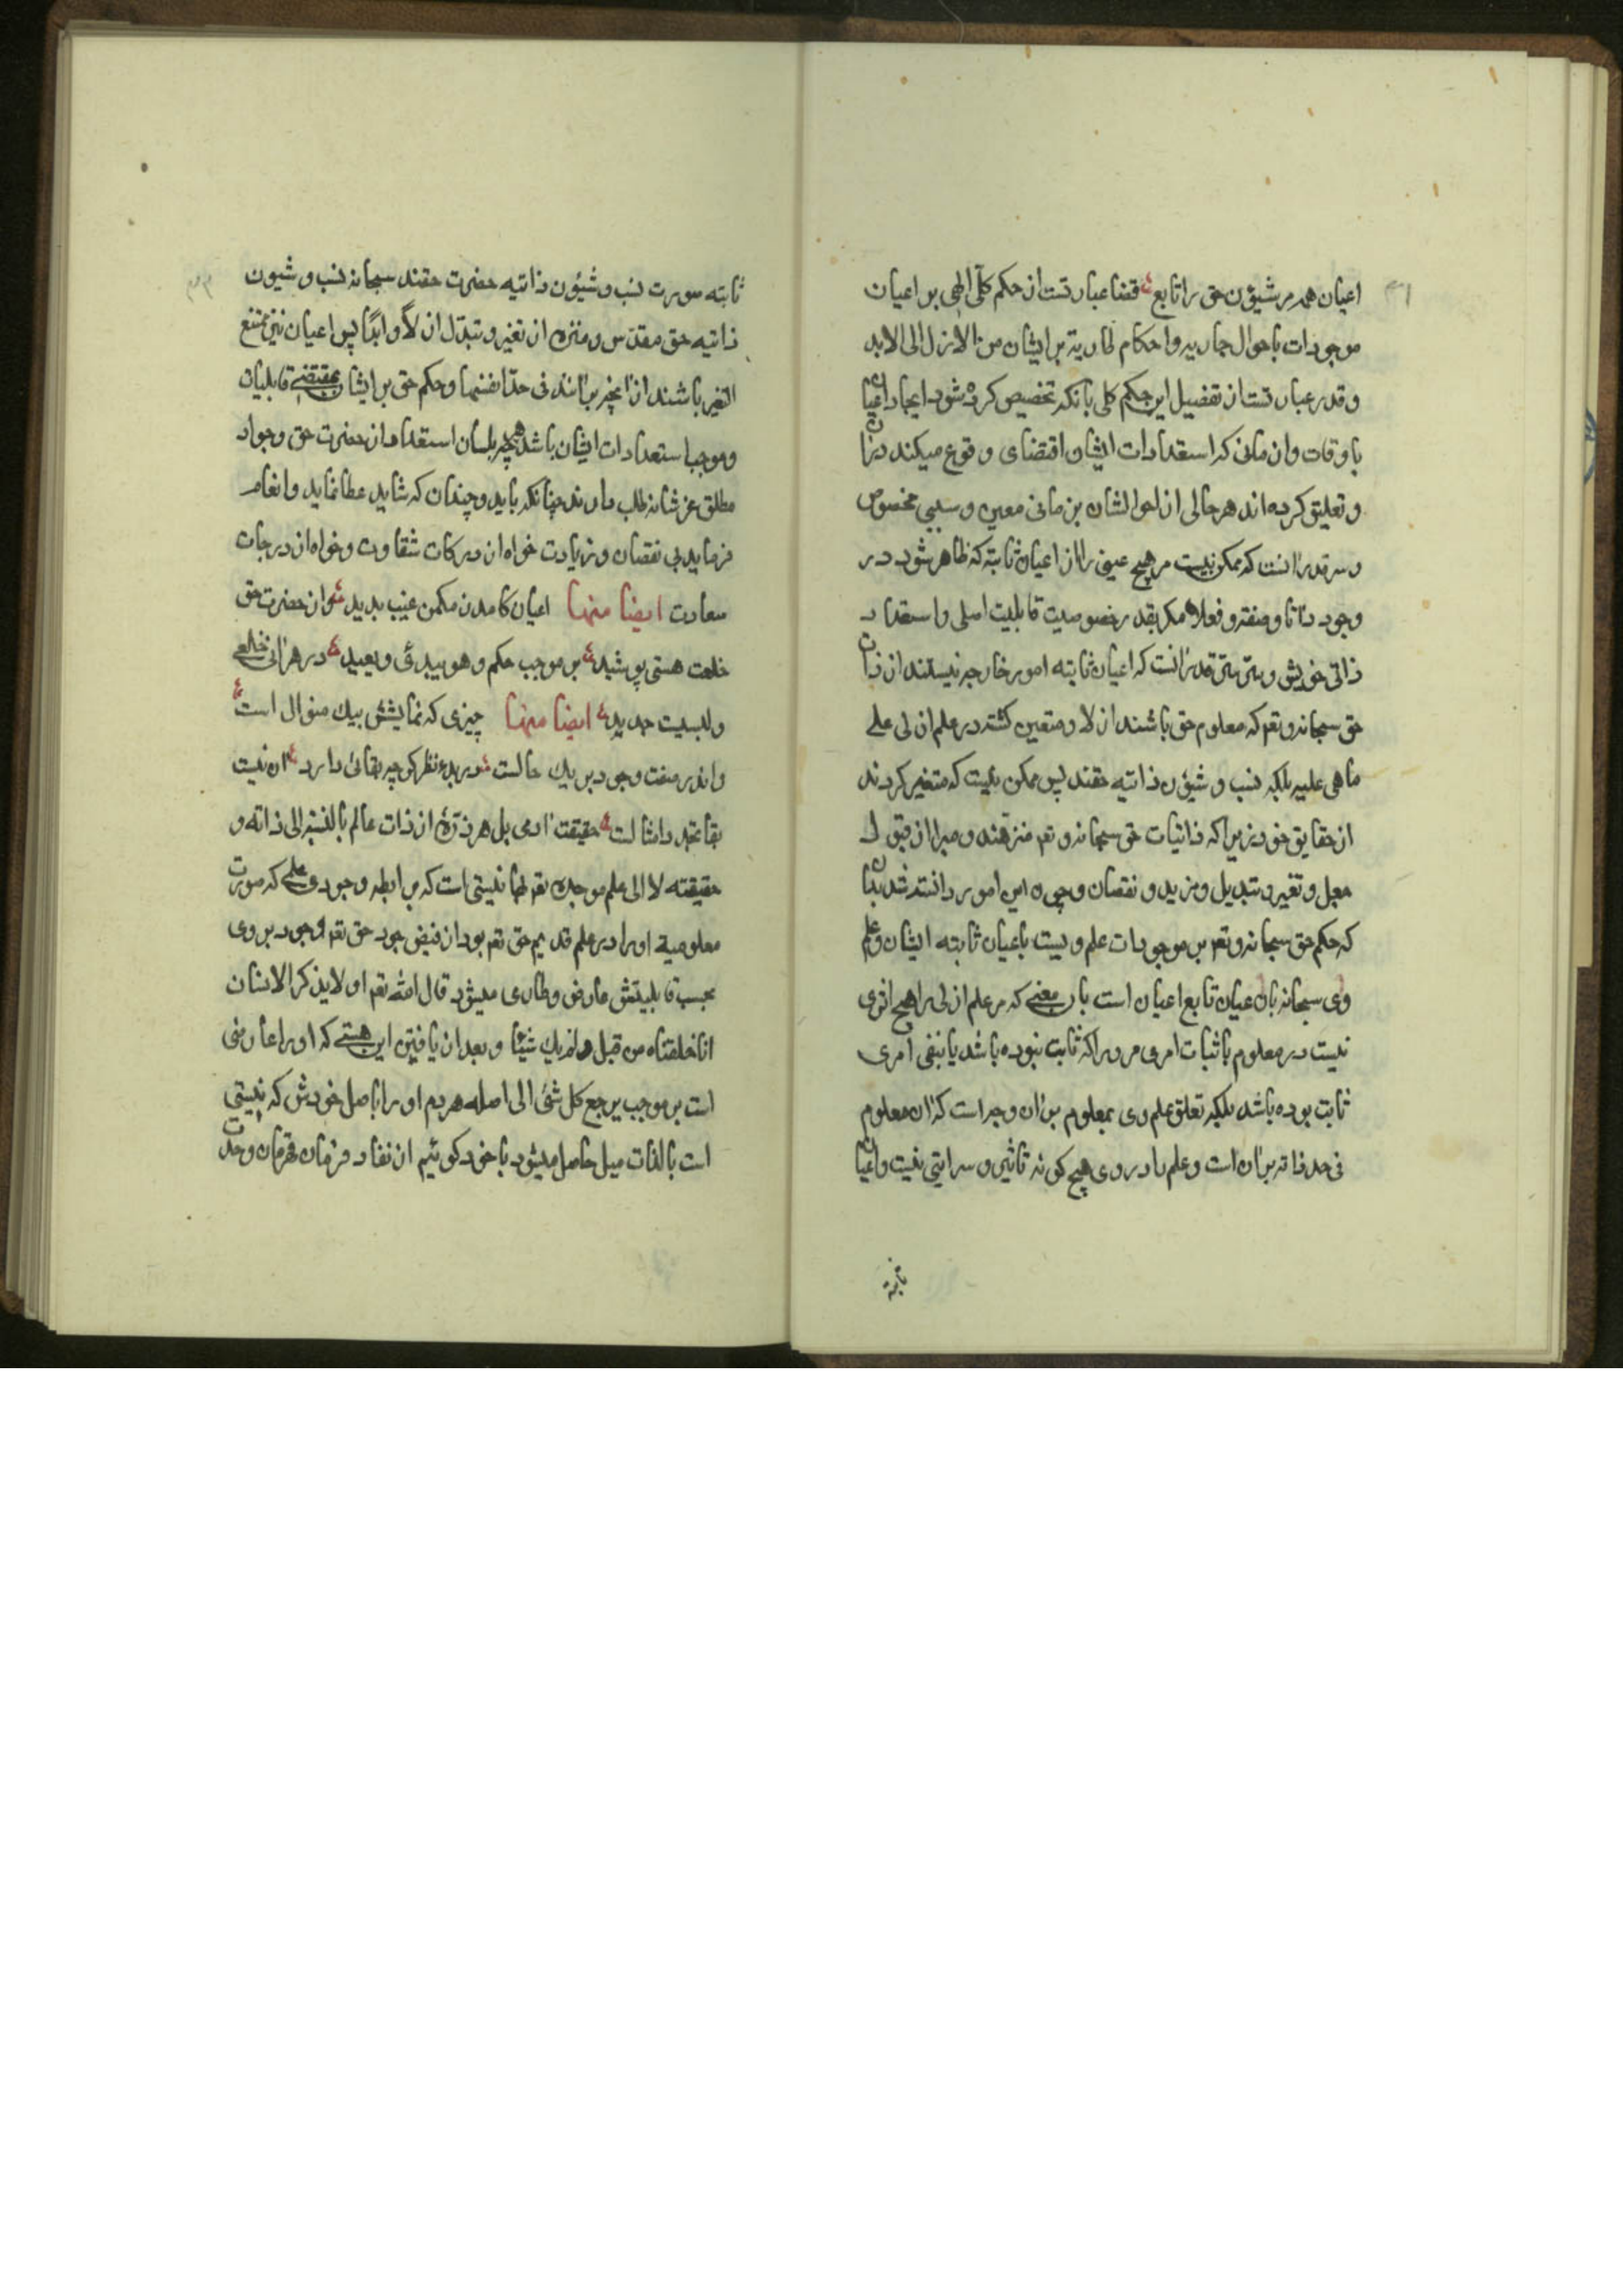 اعیان همه مر شیؤن حق را تابع قضا عبارتست از حکم کلّی الهی بر اعیان
موجودات باحوال جاریه واحکام طاریه بر ایشان من الازل الی الابد
وقدر عبارتست از تفصیل این حکم کلی بانکه تخصیص کرده شود ایجاد اعیان
باوقات وازمانی که استعدادات ایشان اقتضای وقوع میکند دران
و تعلیق کرده اند هر حالی از احوالشان بزمانی معین و سببی مخصوص
و سر قدر انست که ممکن نیست مر هیچ عینی را از اعیان ثابته که ظاهر شود در
وجود ذاتا و صفته و فعلا مکر بقدر خصوصیت قابلیت اصلی واستعداد
ذاتی خویش و سرّ سرّ قدر انست که اعیان ثابته امور خارجه نیستند از ذات
حق سبحانه وتعه که معلوم حق باشند ازلا و متعین کشته در علم ازلی علی
ماهی علیه بلکه نسب و شیؤن ذاتیه حقند پس ممکن نیست که متغیر کردند
از حقایق خود زیراکه ذاتیات حق سبحانه و تعه منزهند و مبرا از قبول
جعل و تغیر و تبدیل و مزید و نقصان وچون این امور دانسته شد بدان
که حکم حق سبحانه وتعه بر موجودات علم ویست باعیان ثابته ایشان وعلم
وی سبحانه باعیان تابع اعیان است بان معنی که مر علم ازلی را هیچ اثری
نیست در معلوم باثبات امری مر ورا که ثابت نبوده باشد یا بنفی امری
ثابت بوده باشد بلکه تعلق علم وی بمعلوم بران وجه است که ان معلوم
فی حد ذاته بران است و علم را در وی هیچ کونه تاثیر و سرایتی نیست واعیان
ثابته
ثابته صورت نسب و شیؤن ذاتیه حضرت حقند سبحانه نسب و شیون
ذاتیه حق مقدّس و منزه از تغیر و تبدّل ازلاً و ابدًا پس اعیان نیز ممتنع
التغیر باشند از انچه بران اند فی حدّ انفسها وحکم حق بر ایشان بمقتضی قابلیات
وموجب استعدادات ایشان باشد هرچه بلسان استعداد از حضرت حق وجواد
مطلق عز شانه طلب دارند چنانکه باید وچندان که شاید عطا نماید وانعام
فرماید بی نقصان و زیادت خواه از درکات شقاوت و خواه از درجات
سعادت ایضا منها اعیان کامدن مکمن غیب پدید وان حضرت حق
خلعت هستی پوشید بر موجب حکم و هو یبدئ و یعید در هر انی خلعی
ولبسیت جدید ایضا منها چیزی که نمایشش بیک منوال است
واندر صفت وجود بر یک حالست در بدء نظر کرچه بقائی دارد ان نیست
بقا تجدد امثالست حقیقت ادمی بل هر ذرّه از ذات عالم بالنسبه الی ذاته و
حقیقته لا الی علم موجده تعه لها نیستی است که برابطه وجودی علمی که صورت
معلومیة اورا در علم قدیم حق تعه بود از فیض جود حق تعه وجود بر وی
بحسب قابلیتش عارض وطاری میشود قال الله تعه اولا یذکر الانسان
انا خلقناه من قبل ولم یک شیئا و بعد از یافتن این هستی که اورا عارضی
است بر موجب یرجع کل شئ الی اصله هر دم اورا باصل خودش که نیستی
است بالذات میل حاصل میشود با خود کوئیم از نفاد فرمان قهرمان وحدت